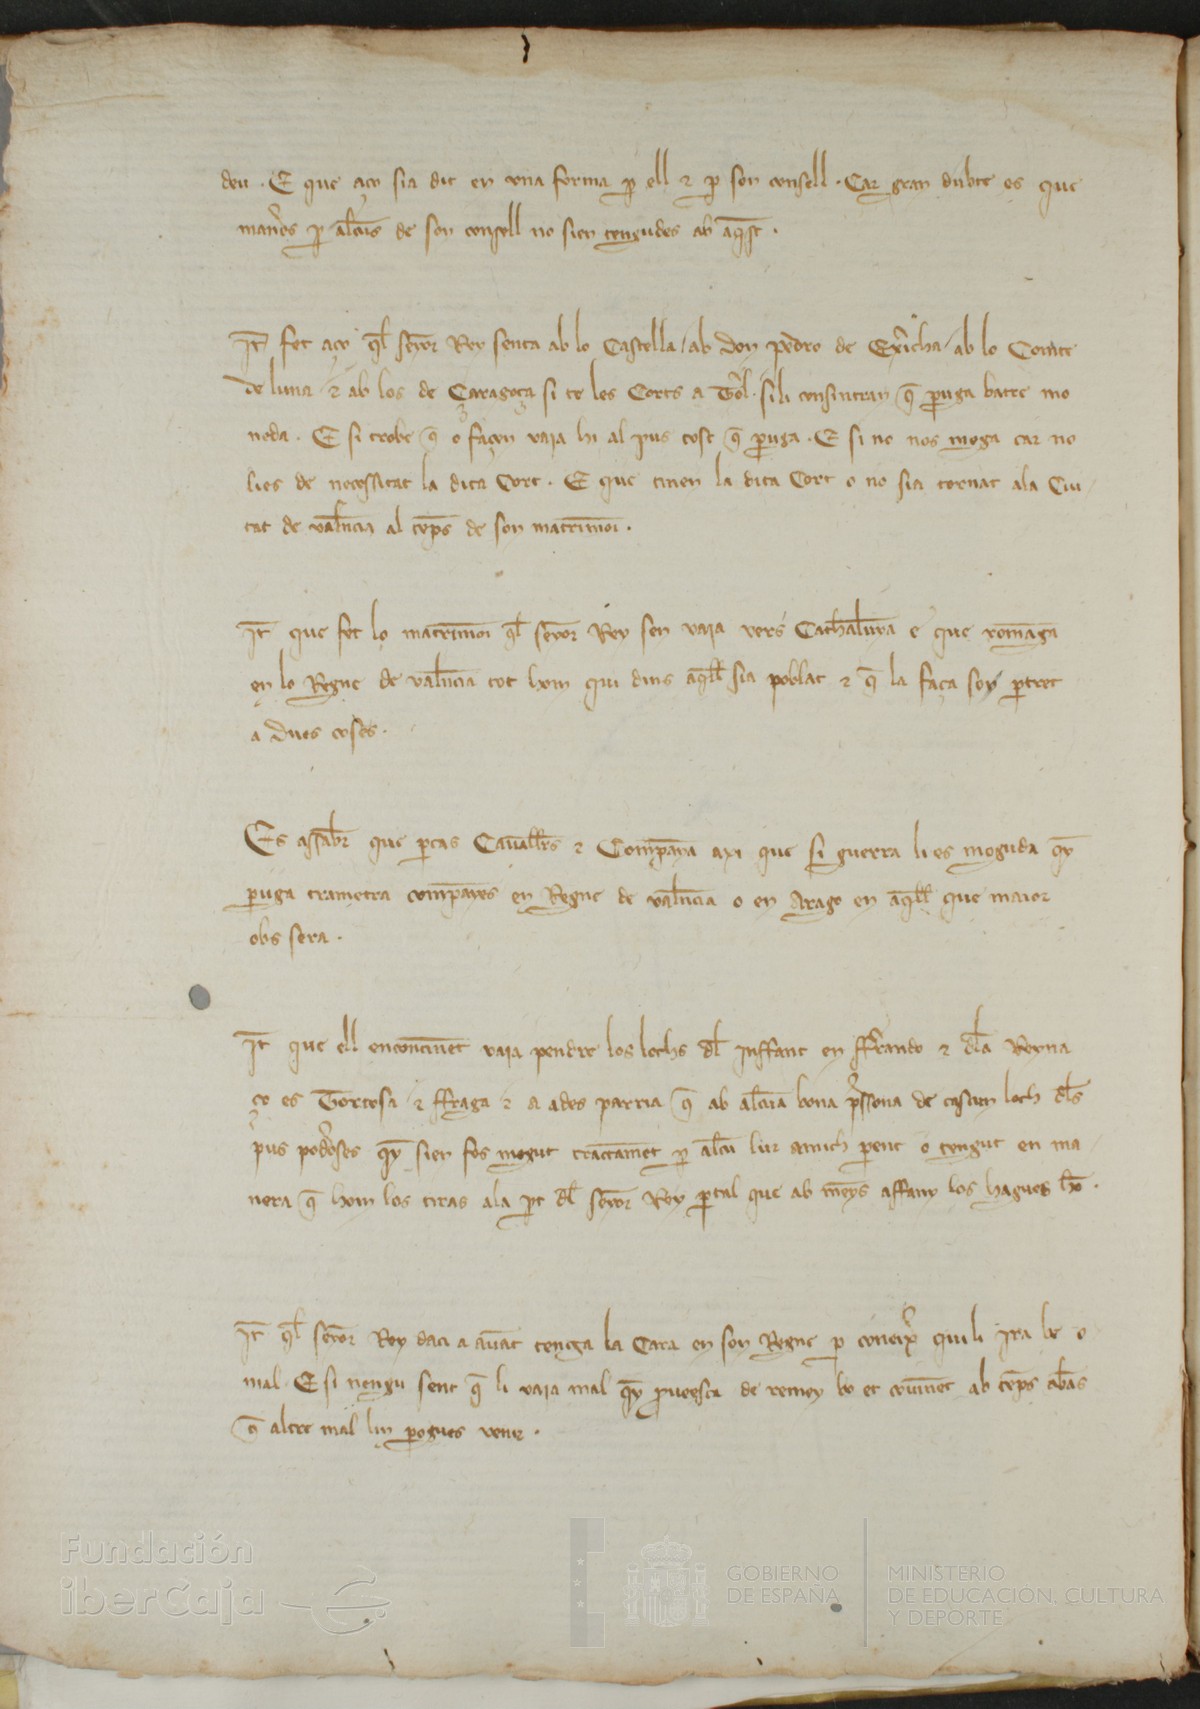 deu · E que aço sia dit en vna forma p̱ ell ⁊ p̱ son consell · Car gran dubte es que
man̉es p̱ alcūs de son consell no sien tengudes ab aq̄st ·
It̄ fet aço q̄l seyor Rey senta ab lo Castella / ab don pedro de Ex̉icha / ab lo Comte
de luna / ⁊ ab los de Caragoça si te les Corts a T̉ol · sili consintran q̄ puga batre mo
neda · E si trobe q̄ o façen vaia hi al pus tost q̄ puga · E si no nos moga car no
lies de necessitat la dita Cort · E que tinen la dita Cort o no sia tornat ala Ciu
tat de val̄ncia al tēps de son matrimōi ·
It̄ que fet lo matrimōi q̄l seyor Rey sen vaia vers Cathalūya e que romāga
en lo Regne de val̄ncia tot hom qui dins aq̄ll sia poblat ⁊ q̄ la faça son p̱tret
a dues coses ·
Es assab̄r que p̱cas Cauallr̄s ⁊ Compāya axi que si guerra li es moguda q̄y
puga trametra compāyes en Regne de val̄ncia o en Arago en aq̄ll que maior
obs sera ·
It̄ que ell encontinēt vaia pendre los lochs dl̄ Inffant en ffr̉ando ⁊ dl̄a Reyna
ço es Tortosa ⁊ ffraga ⁊ a ades parria q̄ ab alcūa bona p̉ssona de cascun loch dl̄s
pus pod̉oses q̄y sien fos mogut tractamēt p̱ alcū lur amich p̱ent o tengut en ma
nera q̄ hom los tiras ala p̱t dl̄ seyor Rey p̱tal que ab meȳs affany los hagues hō ·
It̄ q̄l seyor Rey daci a auāt tenga la Cara en son Regne p̱ coneix̉ quili ira be o
mal · E si nengu sent q̄ li vaia mal q̄y p̱ueesca de remey bo et couinēt ab tēps abās
q̄ altre mal lin pogues venir ·
Fundación
iberCaja
GOBIERNO
DE ESPAÑA
MINISTERIO
DE EDUCACIÓN, CULTURA
Y DEPORTE